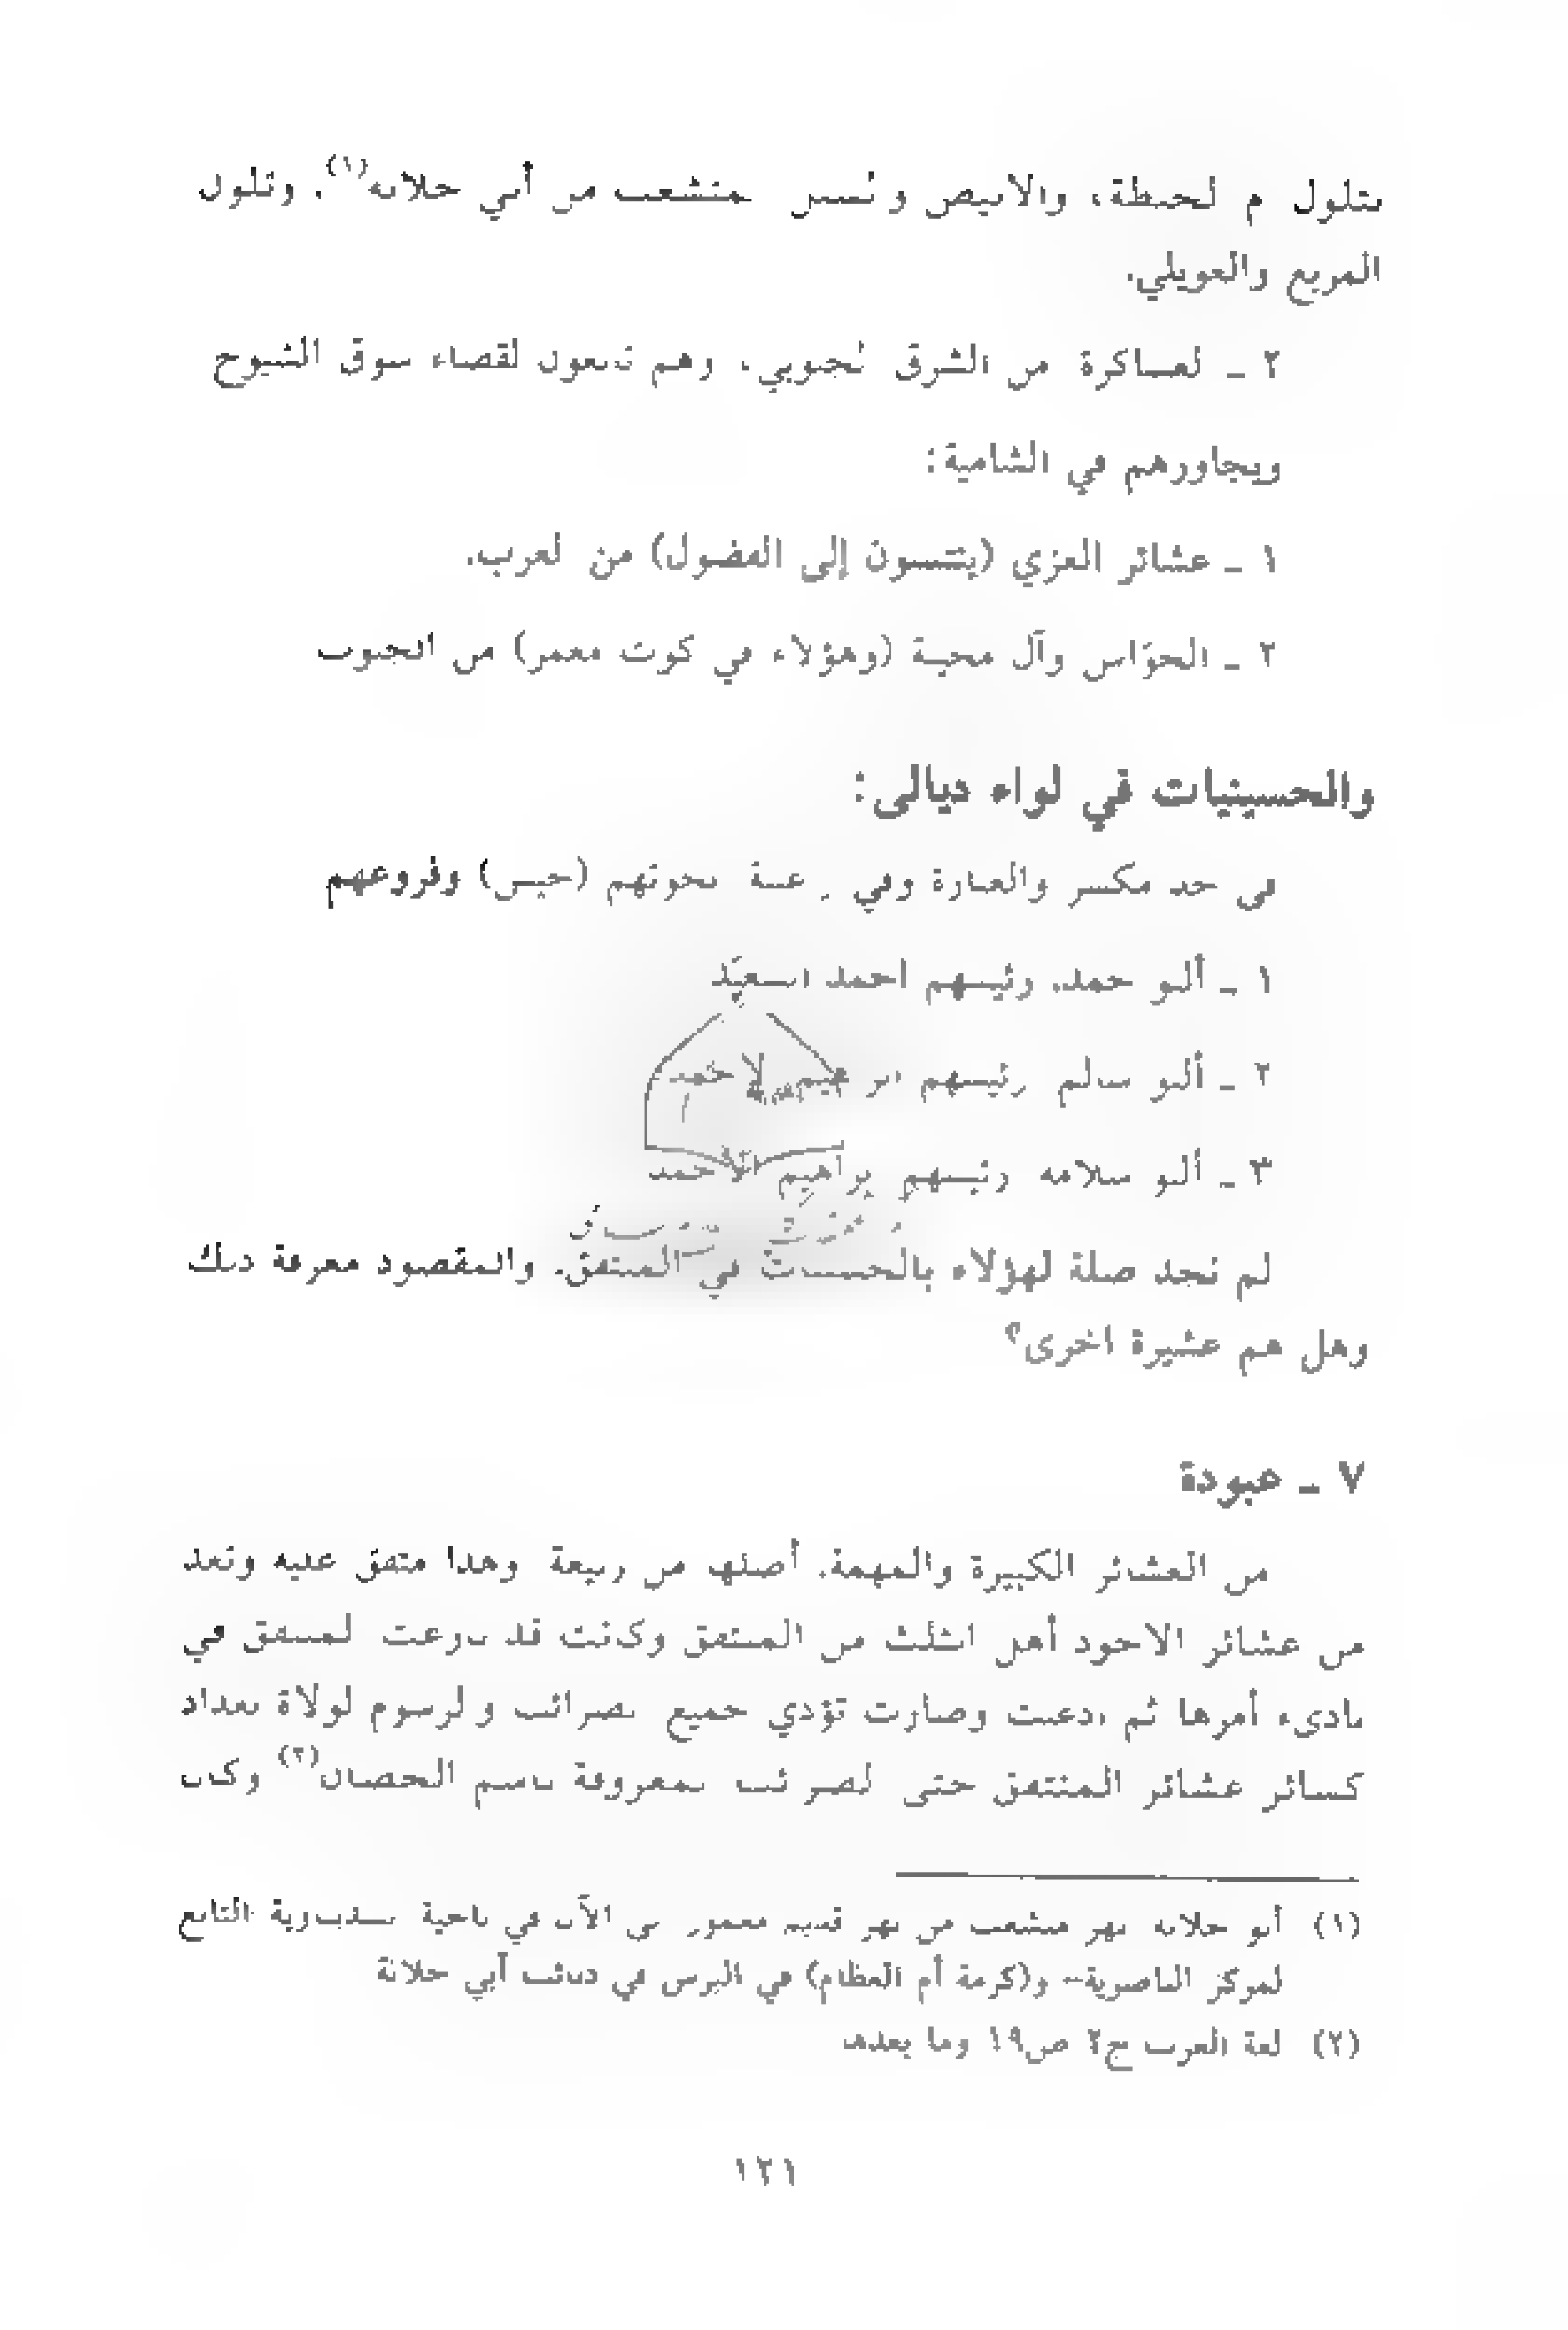 بتلول أم الحنطة، والابيض والنسس المتشعب من أبي حلانه(١). وتلول
المربع والعويلي.
٢ ـ العساكرة من الشرق الجنوبي، وهم تابعون لقضاء سوق الشيوخ
ويجاورهم في الشامية:
١ ـ عشائر الغزي (ينتسبون إلى الفضول) من الغرب.
٢ ـ الحوّاس وآل محينة (وهؤلاء في كوت معمر) من الجنوب
والحسينيات في لواء ديالى:
في حد مكسر والعبارة وفي نخوتهم (حيس) وفروعهم
١ ـ ألبو حمد. رئيسهم احمد السعيّد
٢ ـ ألبو سالم رئيسهم ابراهيم الاحمد
٣ ـ ألبو سلامه رئيسهم إبراهيم الاحمد
لم نجد صلة لهؤلاء بالحسينات في المنتفق. والمقصود معرفة ذلك
وهل هم عشيرة اخرى؟
٧ ـ عبودة
من العشائر الكبيرة والمهمة. أصلها من ربيعة وهذا متفق عليه وتعد
من عشائر الاجود أهل الثلث من المنتفق وكانت قد نازعت المنتفق في
بادىء أمرها ثم اذعنت وصارت تؤدي جميع الضرائب والرسوم لولاة بغداد
كسائر عشائر المنتفق حتى الضرائب المعروفة باسم الحصان(٢) وكان
(١) أبو حلانه نهر متشعب من نهر قديم معمور إلى الآن في ناحية التابع
لمركز الناصرية- و(كرمة أم العظام) في البرس في ذنائب أبي حلانة
(٢) لغة العرب ج٢ ص١٩ وما بعدها
١٢١